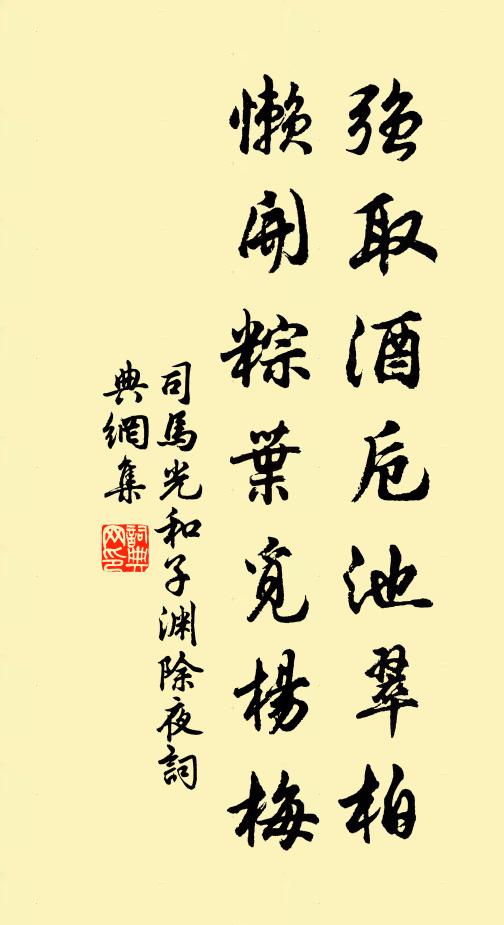 強取酒卮池翠柏
懶開粽葉覓楊梅
司馬光和子渊除夜詞
典網集
詞典網印